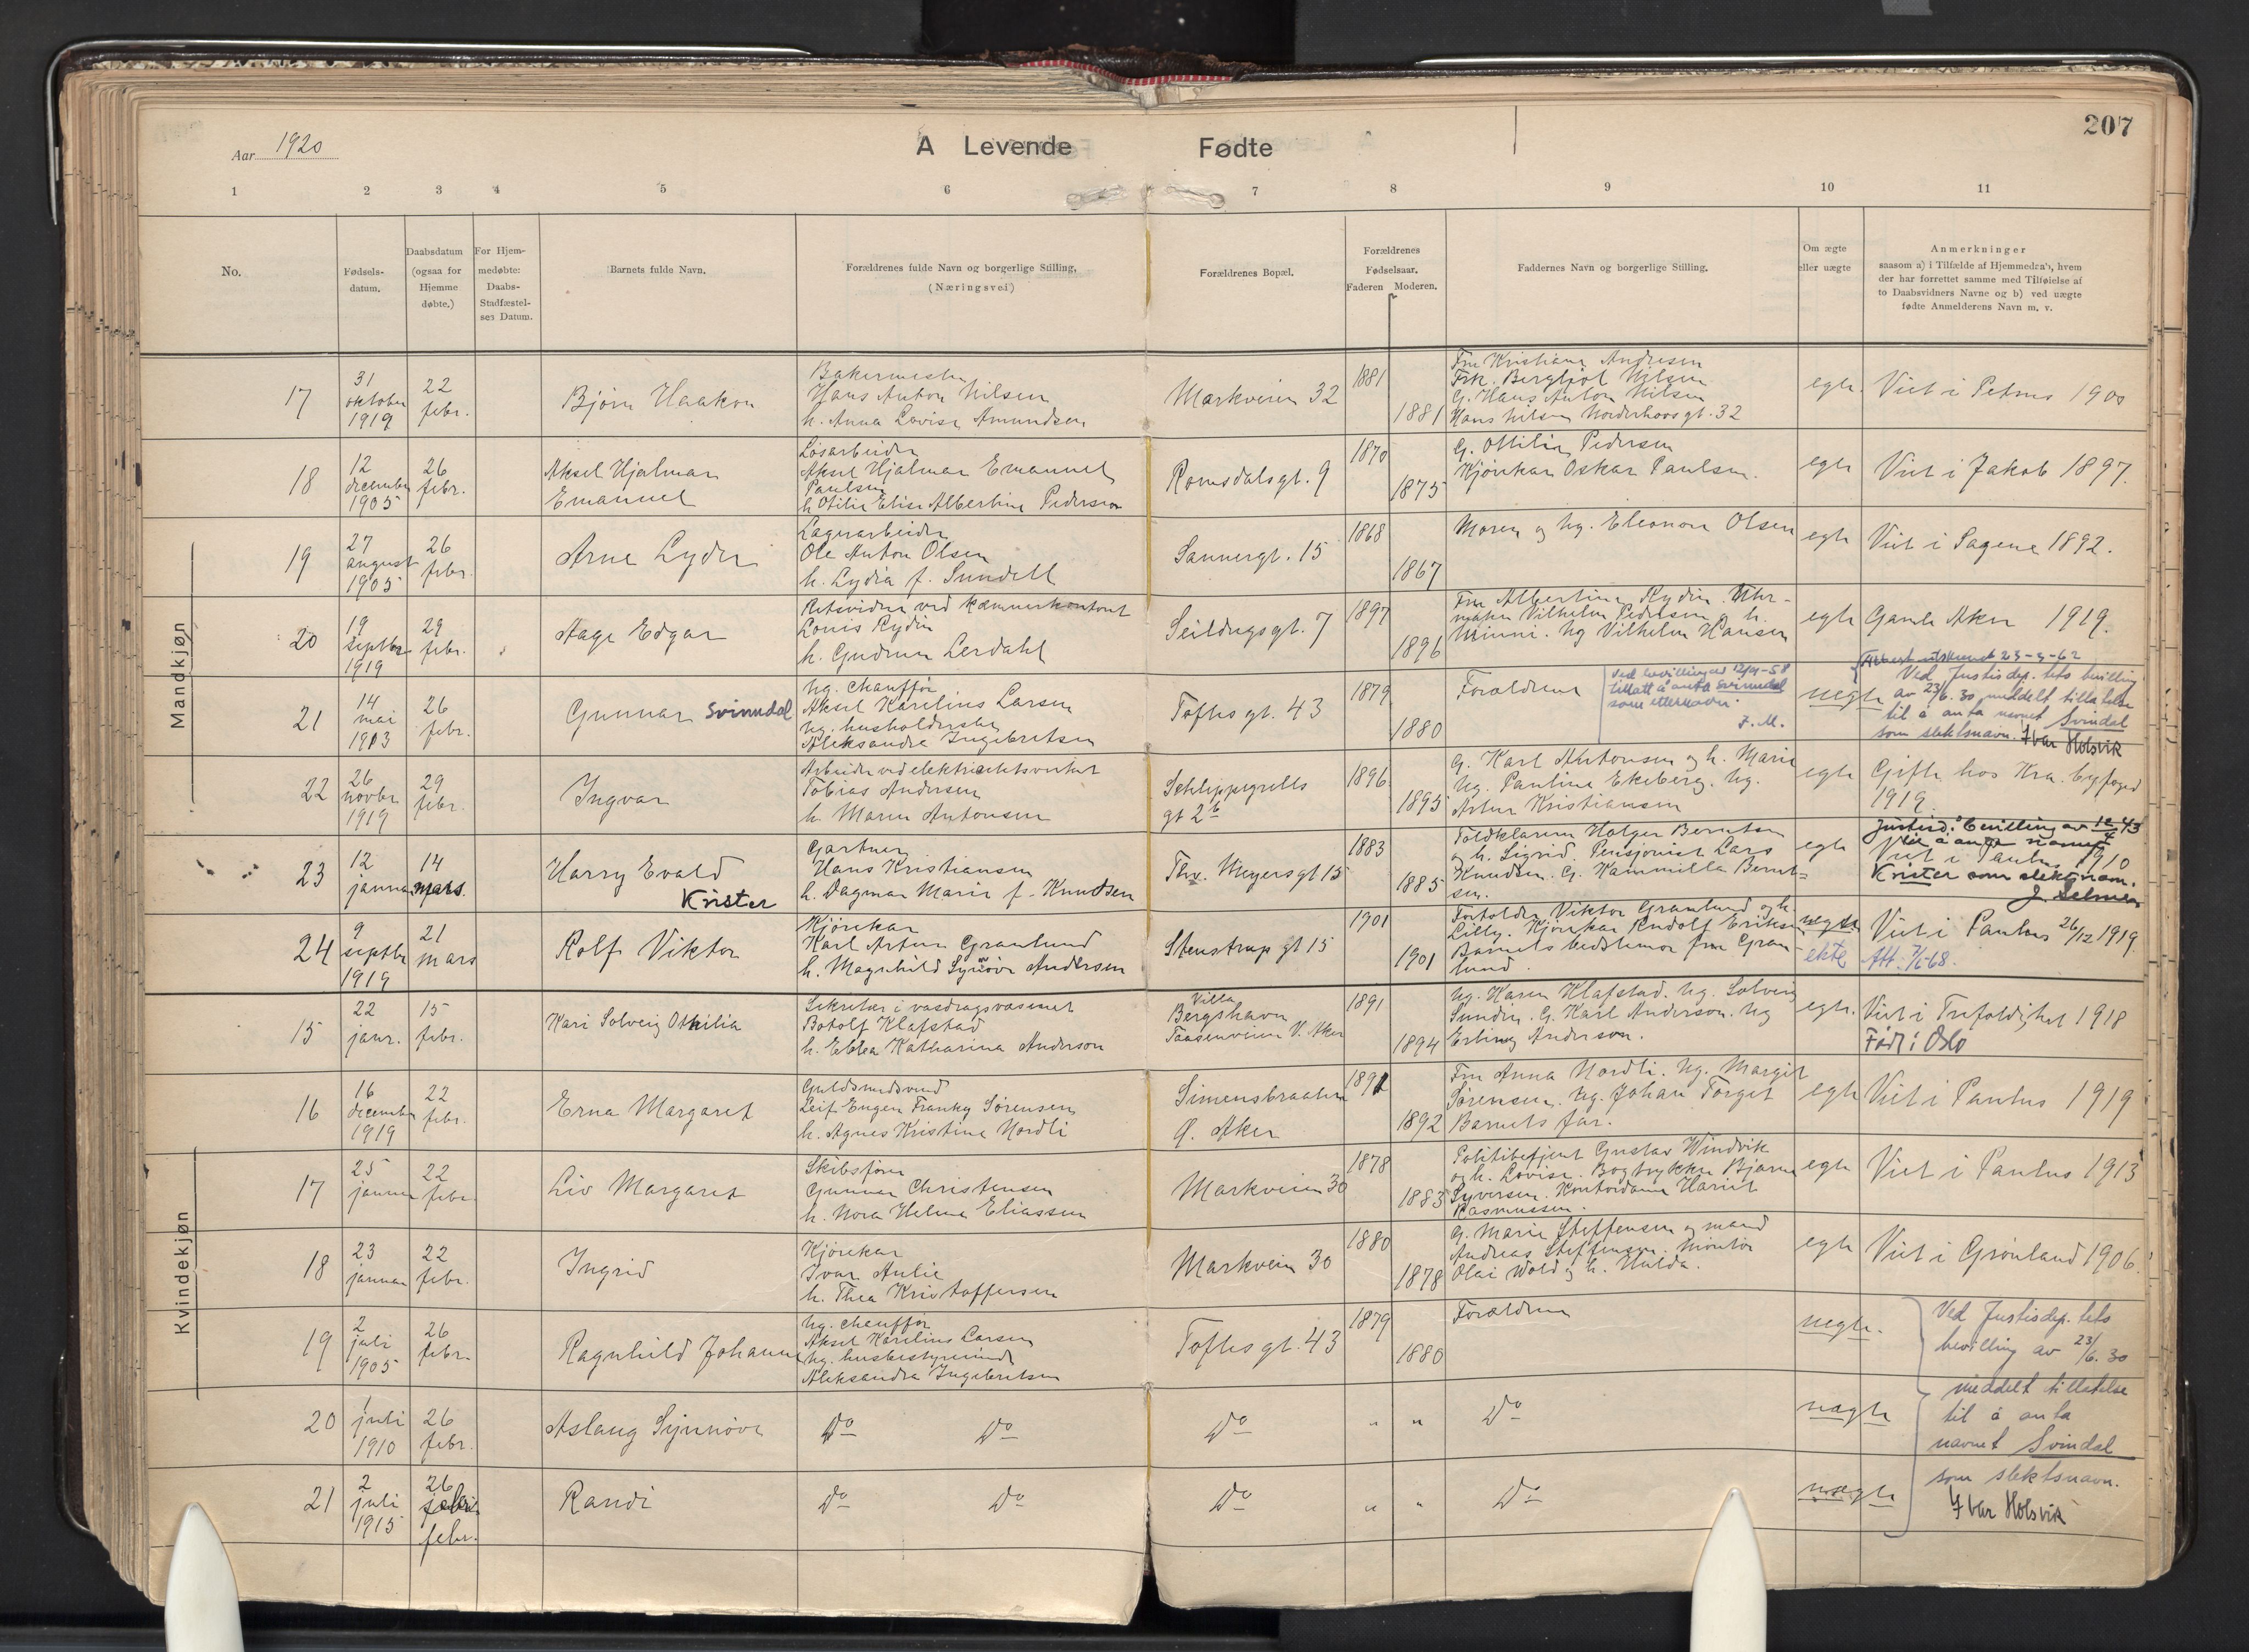 207
Aar 1920
A Levende Fødte
1 2 3 4 5 6 7 8 9 10 11
No.
Fødsels-
datum.
Daabsdatum
(ogsaa for
Hjemme
døbte.)
For Hjem-
medøbte:
Daabs-
Stadfæstel-
ses Datum.
Barnets fulde Navn.
Forældrenes fulde Navn og borgerlige Stilling,
(Næringsvei)
Forældrenes Bopæl.
Forældrenes
Fødselsaar.
Faderen Moderen.
Faddernes Navn og borgerlige Stilling.
Om ægte
eller uægte
Anmerkninger
saasom a) i Tilfælde af Hjemmedaab, hvem
der har forrettet samme med Tilføielse af
to Daabsvidners Navne og b) ved uægte
fødte Anmelderens Navn m. v.
Mandkjøn
17
31
oktober
1919
22
febr.
Bjørn Haakon
Bakermester
Hans Anton Nilsen
h. Anna Lovise Amundsen
Markveien 32
1881
1881
Fru Kristiane Andresen
Frk. Bergljot Nilsen
G. Hans Anton Nilsen
Hans Nilsen Norderhovsgt. 32
egte
Viet i Petrus 1900
18
12
december
1905
26
febr.
Aksel Hjalmar
Emanuel
Løsarbeider
Aksel Hjalmar Emanuel
Paulsen
h. Otilie Elise Albertine Pedersen
Romsdalsgt. 9
1870
1875
G. Ottilie Pedersen
Kjørekar Oskar Paulsen.
egte
Viet i Jakob 1897.
19
27
august
1905
26
febr.
Arne Lyder
Lagerarbeider
Ole Anton Olsen
h. Lydia f. Sundell
Sannergt. 15
1868
1867
Moren og Ug. Eleonore Olsen
egte
Viet i Sagene 1892.
20
19
septbr
1919
29
febr.
Aage Edgar
Retsvidne ved kæmnerkontoret
Louis Rydin
h. Gudrun Lerdahl
Seildugsgt. 7
1897
1896
Fru Albertine Rydin. Uhr-
maker Vilhelm Pedersen og h.
Minni. Ug Vilhelm Hansen
egte
Gamle Aker 1919.
21
14
mai
1913
26
febr.
Gunnar Svinndal
Ug. chauffør
Aksel Karelius Larsen
Ug. husholderske
Aleksandra Ingebretsen
Toftes gt. 43
1879
1880
Forældrene
Ved bevilling av 12/9-58
tillatt å anta Svinndal
som etternavn.
J. M.
uegte
Attest utskrevet 23-3-62
Ved Justisdep. tets bevilling
av 23/6.30 meddelt tillatelse
til å anta navnet Svindal
som slektsnavn. Ivar Holsvik
22
26
novbr
1919
29
febr.
Ingvar
Arbeider ved elektricitetsverket
Tobias Andersen
h. Maren Antonsen
Schleppegrells
gt 2b
1896.
1895
G. Karl Antonsen og h. Marie
Ug. Pauline Ekeberg. Ug.
Artur Kristiansen
egte
Gifte hos Kra. byfoged
1919.
23
12
januar
14
mars.
Harry Evald
Krister
Gartner
Hans Kristiansen
h. Dagmar Marie f. Knudsen
Thv. Meyersgt 15
1883
1885
Toldklarerer Holger Berntsen
og h. Sigrid. Pensjonist Lars
Knudsen. G. Kammilla Bernt-
sen.
egte
Justisd. bevilling av 12/4 43
til å anta navnet
Viet i Paulus 1910
Krister som slektsnavn.
J. Selmer
24
9
septbr
1919
21
mars
Rolf Viktor
Kjørekar
Karl Artur Granlund
h. Magnhild Synnøve Andersen
Stenstrup gt 15
1901
1901
Forfolder Viktor Granlund og h.
Lilly. Kjørekar Rudolf Eriksen
Barnets bedstemor fru Gran-
lund.
uegte
ekte
Viet i Paulus 26/12 1919.
Att. 7/5-68.
Kvindekjøn
15
22
janr.
15
febr.
Kari Solveig Othilia
Sekretær i vasdragsvæsenet
Botolf Klafstad
h. Ebbea Katharina Anderson
Villa
Bergshavn
Taasenveien V. Aker
1891
1894
Ug. Karen Klafstad. Ug. Solveig
Sundin. G. Karl Anderson. Ug
Erling Anderson.
egte.
Viet i Trefoldighet 1918
Født i Oslo
16
16
december
1919
22
febr.
Erna Margaret
Guldsmedsvend
Leif Eugen Franky Sørensen
h. Agnes Kristine Nordli
Simensbraaten
Ø. Aker
1891
1892
Fru Anna Nordli. Ug. Margit
Sørensen. Ug. Johan Torget
Barnets far.
egte
Viet i Paulus 1919
17
25
januar
22
febr.
Liv Margaret
Skibsfører
Gunnar Christensen
h. Nora Helene Eliassen
Markveien 30
1878
1883
Politibetjent Gustav Windvik
og h. Lovise. Bogtrykker Bjarne
Syversen. Kontordame Hariet
Rasmussen.
egte
Viet i Paulus 1913
18
23
januar
22
febr.
Ingrid
Kjørekar
Ivar Aulie
h. Thea Kristoffersen
Markveien 30
1880
1878
G. Marie Steffensen og mand
Andreas Steffensen. Montør
Olai Wold og h. Hulda.
egte
Viet i Grønland 1906.
19
2
juli
1905
26
febr.
Ragnhild Johanne
Ug. chauffør
Aksel Karelius Larsen
Ug. husbestyrerinde
Aleksandra Ingebretsen
Toftes gt. 43
1879
1880
Forældrene
uegte.
Ved Justisdep. tets
bevilling av 23/6.30
meddelt tillatelse
til å anta
navnet Svindal
som slektsnavn.
Ivar Holsvik
20
1
juli
1910
26
febr.
Aslaug Synnøve
Do Do
Do
" "
Do
uegte
21
2
juli
1915
26
febr.
Randi
Do Do
Do
" "
Do
uegte